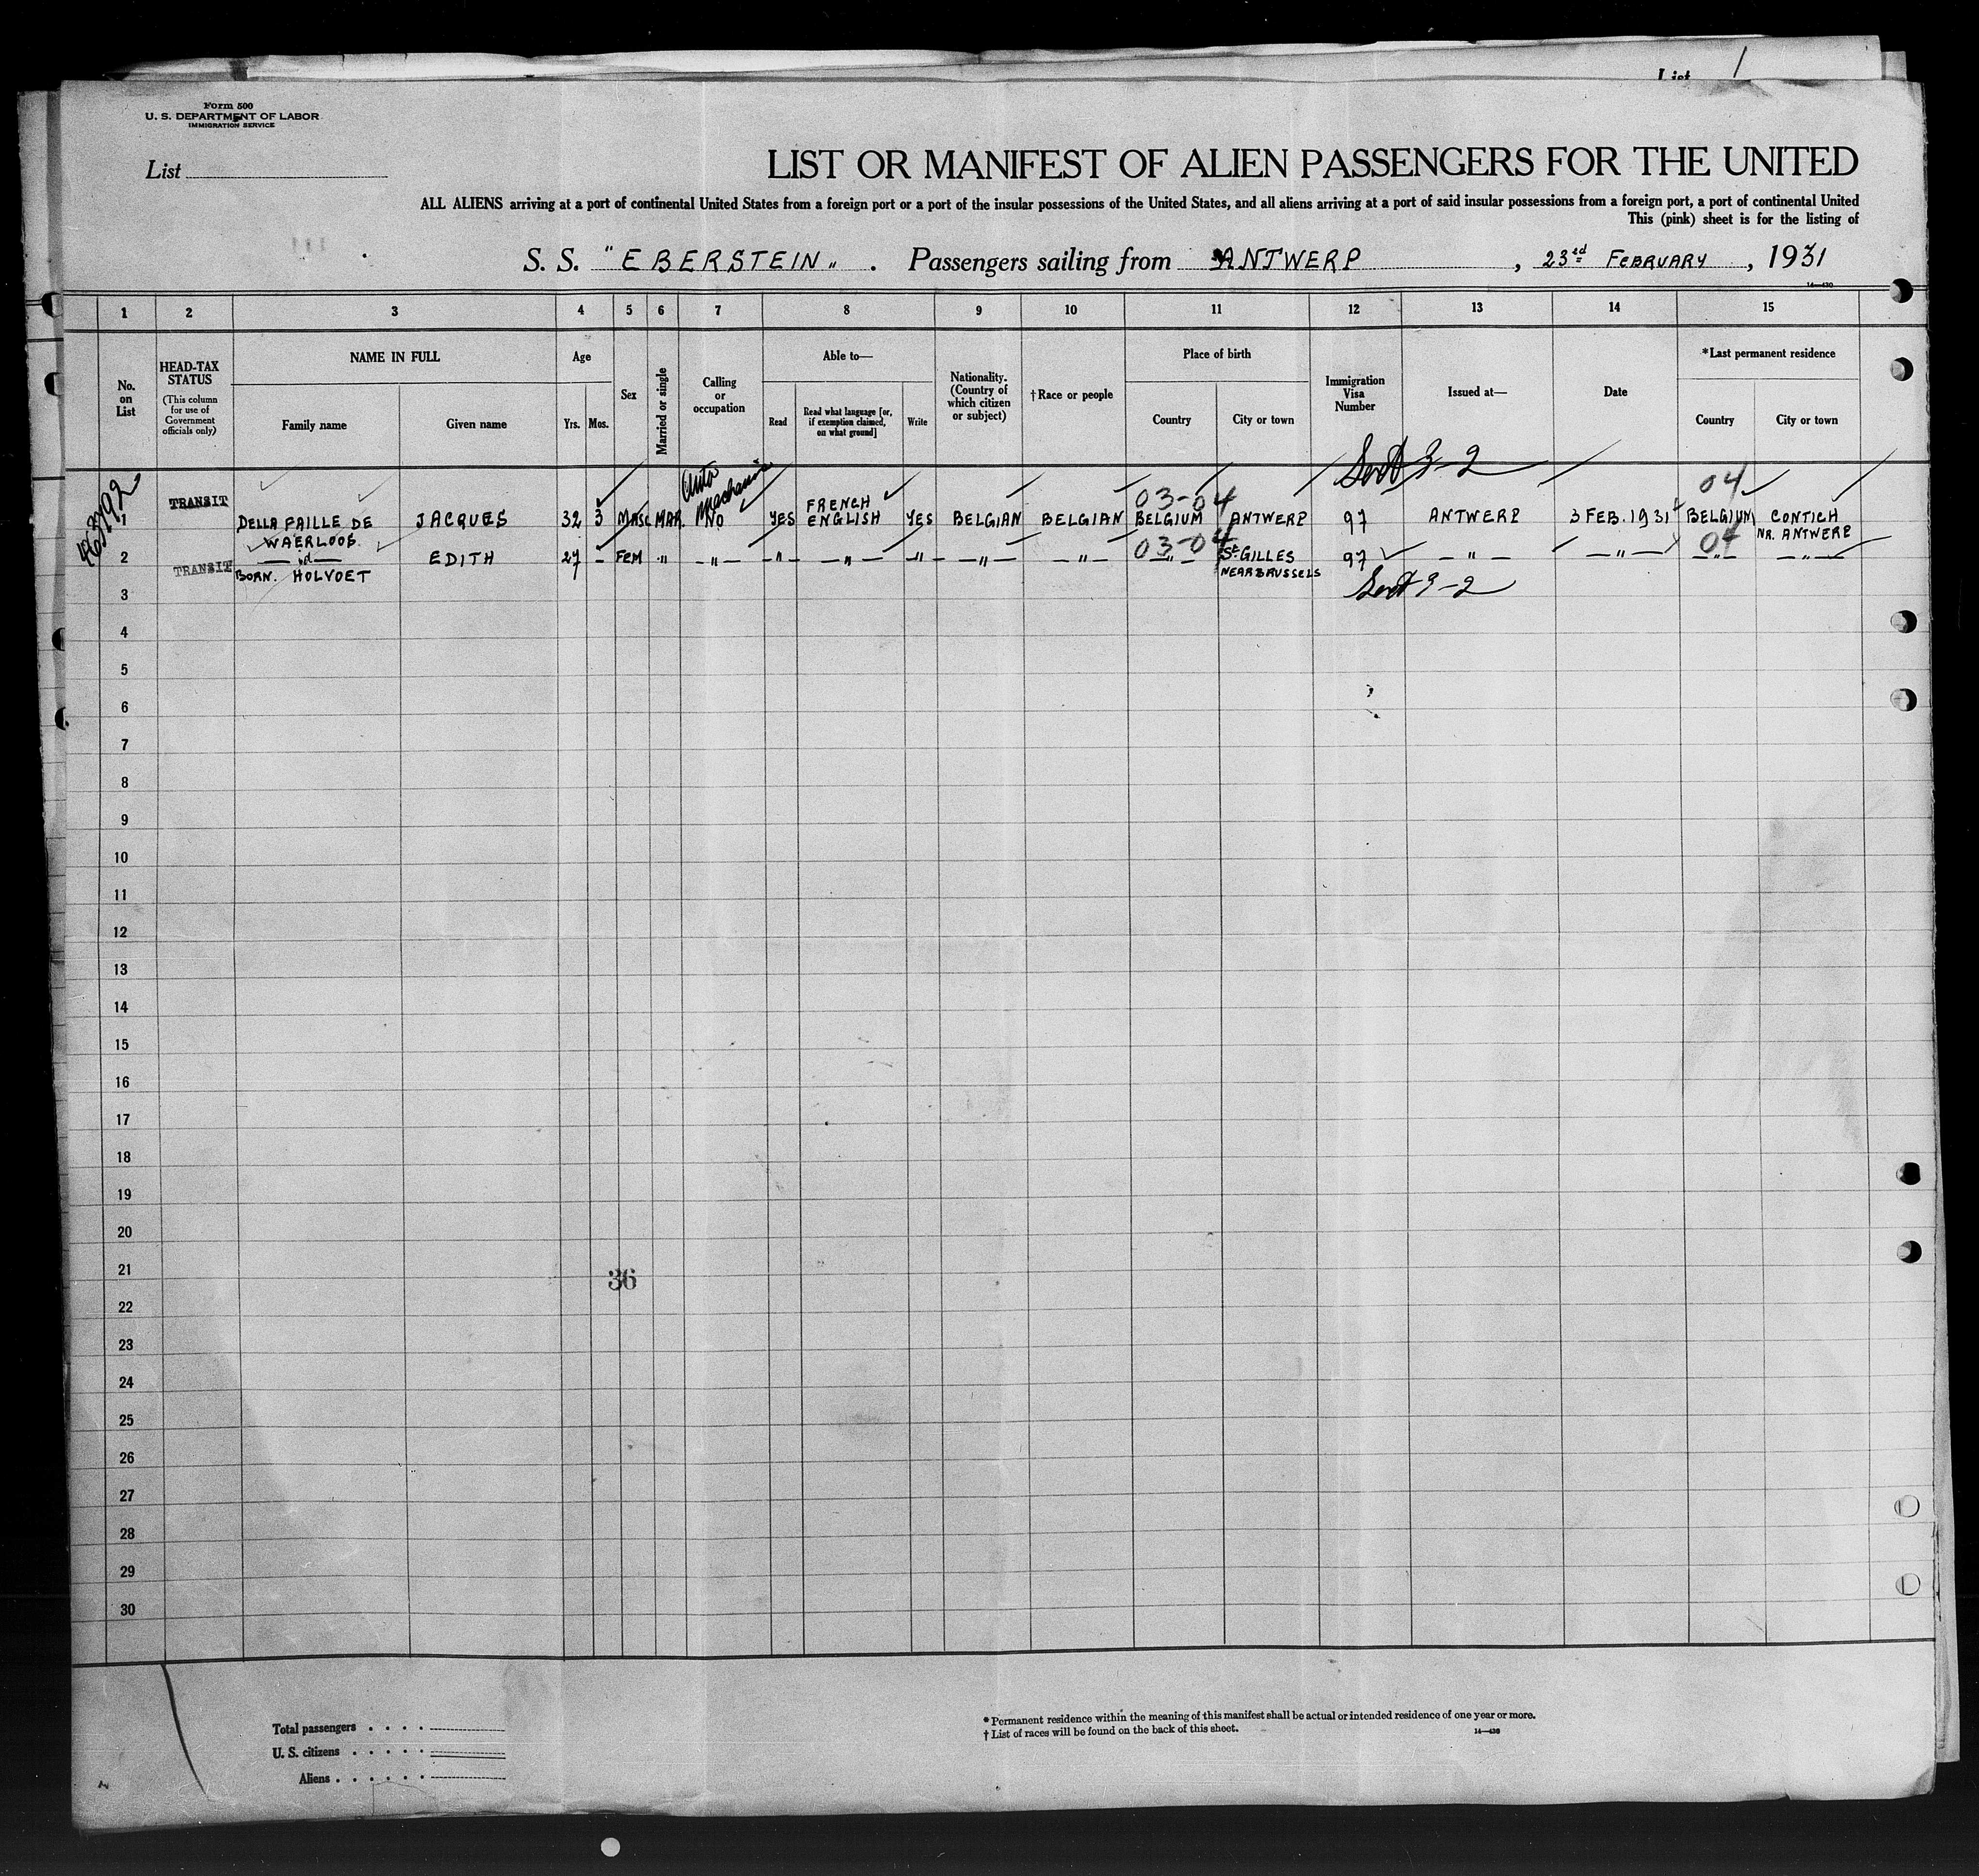 List 1
Form 500
U. S. DEPARTMENT OF LABOR
IMMIGRATION SERVICE
List
LIST OR MANIFEST OF ALIEN PASSENGERS FOR THE UNITED
ALL ALIENS arriving at a port of continental United States from a foreign port or a port of the insular possessions of the United States, and all aliens arriving at a port of said insular possessions from a foreign port, a port of continental United
This (pink) sheet is for the listing of
S. S. "EBERSTEIN". Passengers sailing from ANTWERP, 23rd FEBRUARY, 1931
14—430
1 2 3 4 5 6 7 8 9 10 11 12 13 14 15
No. on List
HEAD-TAX STATUS
(This column for use of Government officials only)
NAME IN FULL
Family name Given name
Age
Yrs. Mos.
Sex
Married or single
Calling or occupation
Able to—
Read
Read what language [or, if exemption claimed, on what ground]
Write
Nationality. (Country of which citizen or subject)
†Race or people
Place of birth
Country City or town
Immigration Visa Number
Issued at—
Date
*Last permanent residence
Country City or town
Auto Mechanic
03-04
04
1 TRANSIT DELLA FAILLE DE WAERLOOS JACQUES 32 3 MASC MAR. NO YES FRENCH ENGLISH YES BELGIAN BELGIAN BELGIUM ANTWERP 97 ANTWERP 3 FEB. 1931 BELGIUM CONTICH NR. ANTWERP
03-04
04
2 TRANSIT — id — BORN. HOLVOET EDITH 27 - FEM " — " — — " — — " — — " — — " — — " — — " — ST GILLES NEAR BRUSSELS 97 — " — — " — — " — — " —
3
4
5
6
7
8
9
10
11
12
13
14
15
16
17
18
19
20
21
36
22
23
24
25
26
27
28
29
30
Total passengers . . . .
U. S. citizens . . . . .
Aliens . . . . . .
*Permanent residence within the meaning of this manifest shall be actual or intended residence of one year or more.
†List of races will be found on the back of this sheet.
14—430